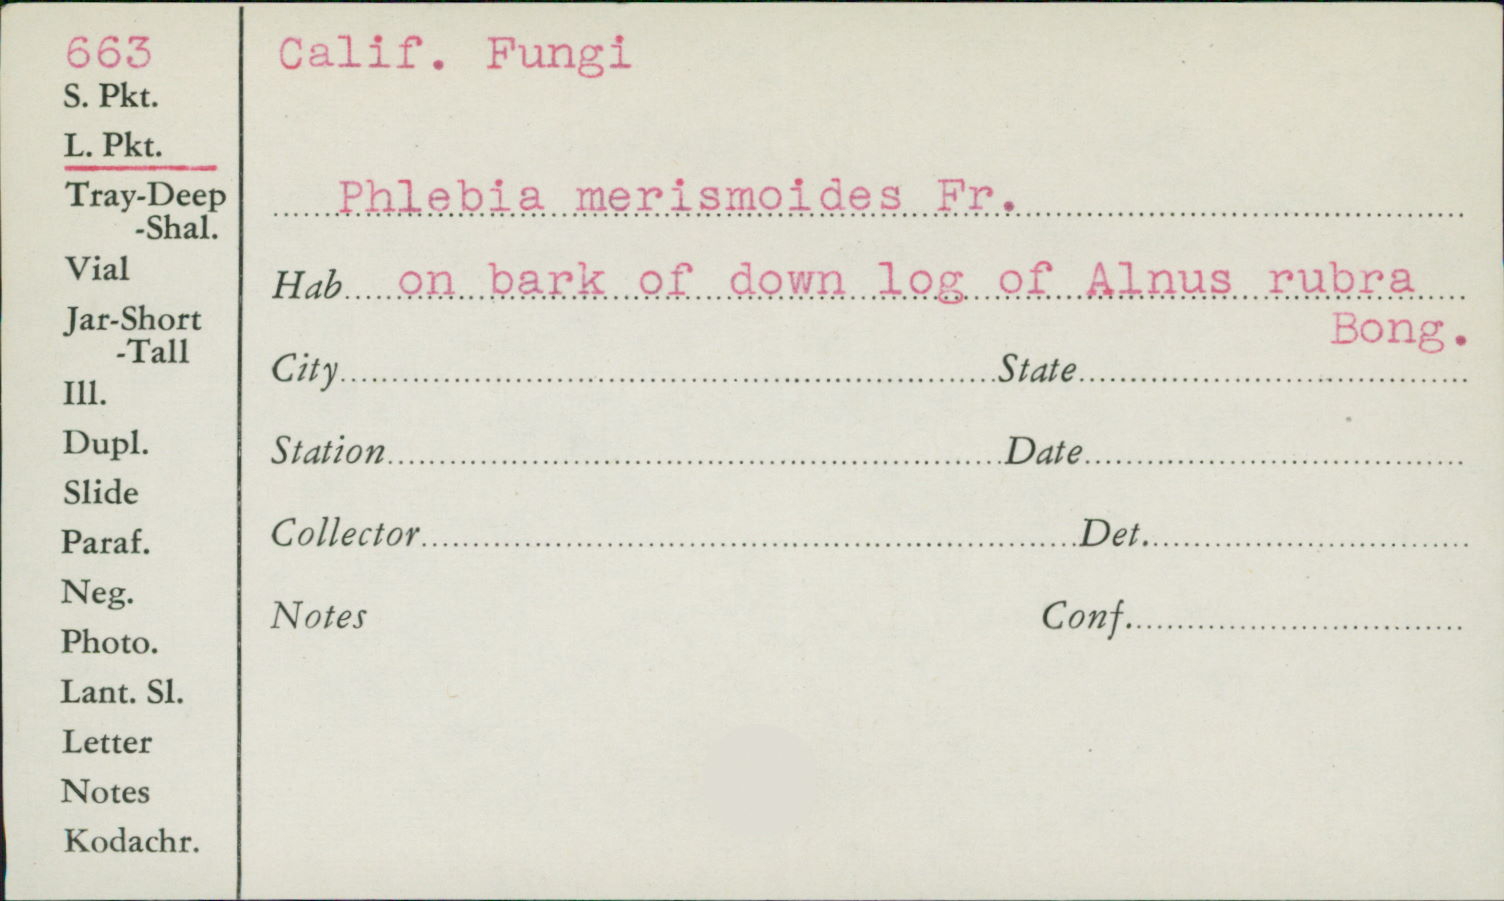 663
S. Pkt.
L. Pkt.
Tray-Deep
-Shal.
Vial
Jar-Short
-Tall
Ill.
Dupl.
Slide
Paraf.
Neg.
Photo.
Lant. Sl.
Letter
Notes
Kodachr.
Calif. Fungi
Phlebia merismoides Fr.
Hab on bark of down log of Alnus rubra
Bong.
City State
Station Date
Collector Det.
Notes Conf.